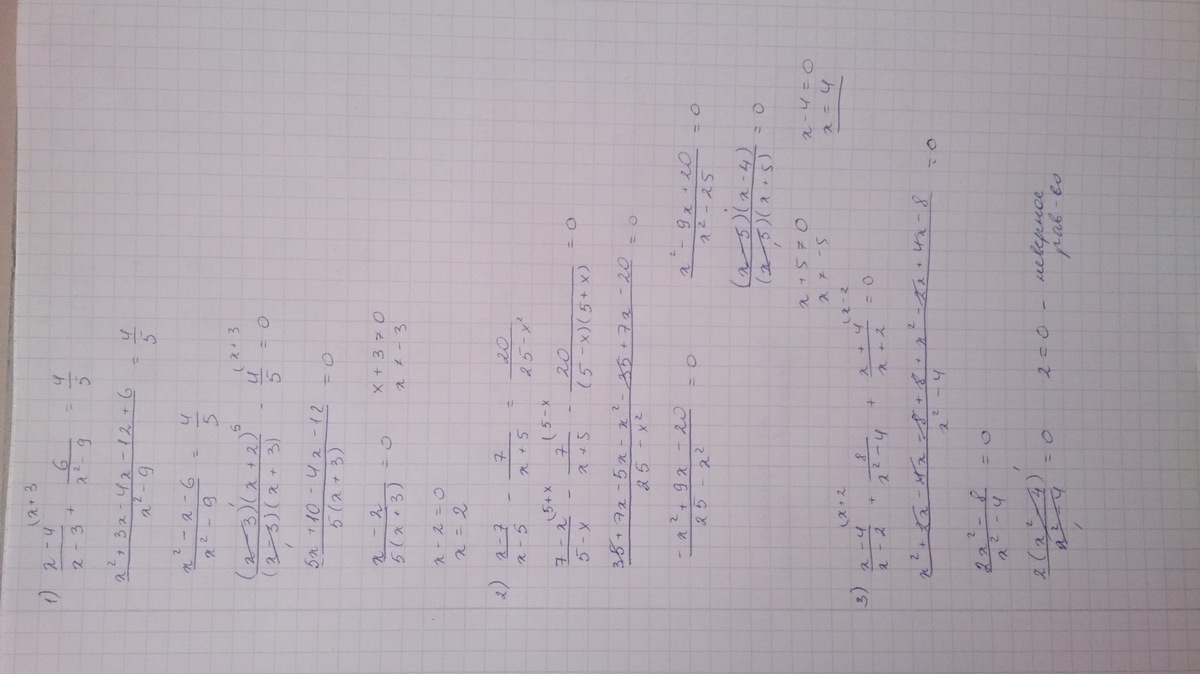 1) (x-4)/(x-3) ⁽ˣ⁺³ + 6/(x²-9) = 4/5
(x²+3x-4x-12+6)/(x²-9) = 4/5
(x²-x-6)/(x²-9) = 4/5
(x-3)(x+2)⁽⁵/(x-3)(x+3) - 4/5 ⁽ˣ⁺³ = 0
(5x+10-4x-12)/(5(x+3)) = 0
(x-2)/(5(x+3)) = 0 x+3≠0
x≠-3
x-2=0
x=2
2) (x-7)/(x-5) - 7/(x+5) = 20/(25-x²)
(7-x)/(5-x) ⁽⁵⁺ˣ - 7/(x+5) ⁽⁵⁻ˣ - 20/((5-x)(5+x)) = 0
(35+7x-5x-x²-35+7x-20)/(25-x²) = 0
(-x²+9x-20)/(25-x²) = 0
(x²-9x+20)/(x²-25) = 0
(x-5)(x-4)/(x-5)(x+5) = 0
x+5≠0
x≠-5
x-4=0
x=4
3) (x-4)/(x-2) ⁽ˣ⁺² + 8/(x²-4) + (x+4)/(x+2) ⁽ˣ⁻² = 0
(x²+2x-4x-8+8+x²-2x+4x-8)/(x²-4) = 0
(2x²-8)/(x²-4) = 0
2(x²-4)/(x²-4) = 0 2=0 - неверное
рав-во